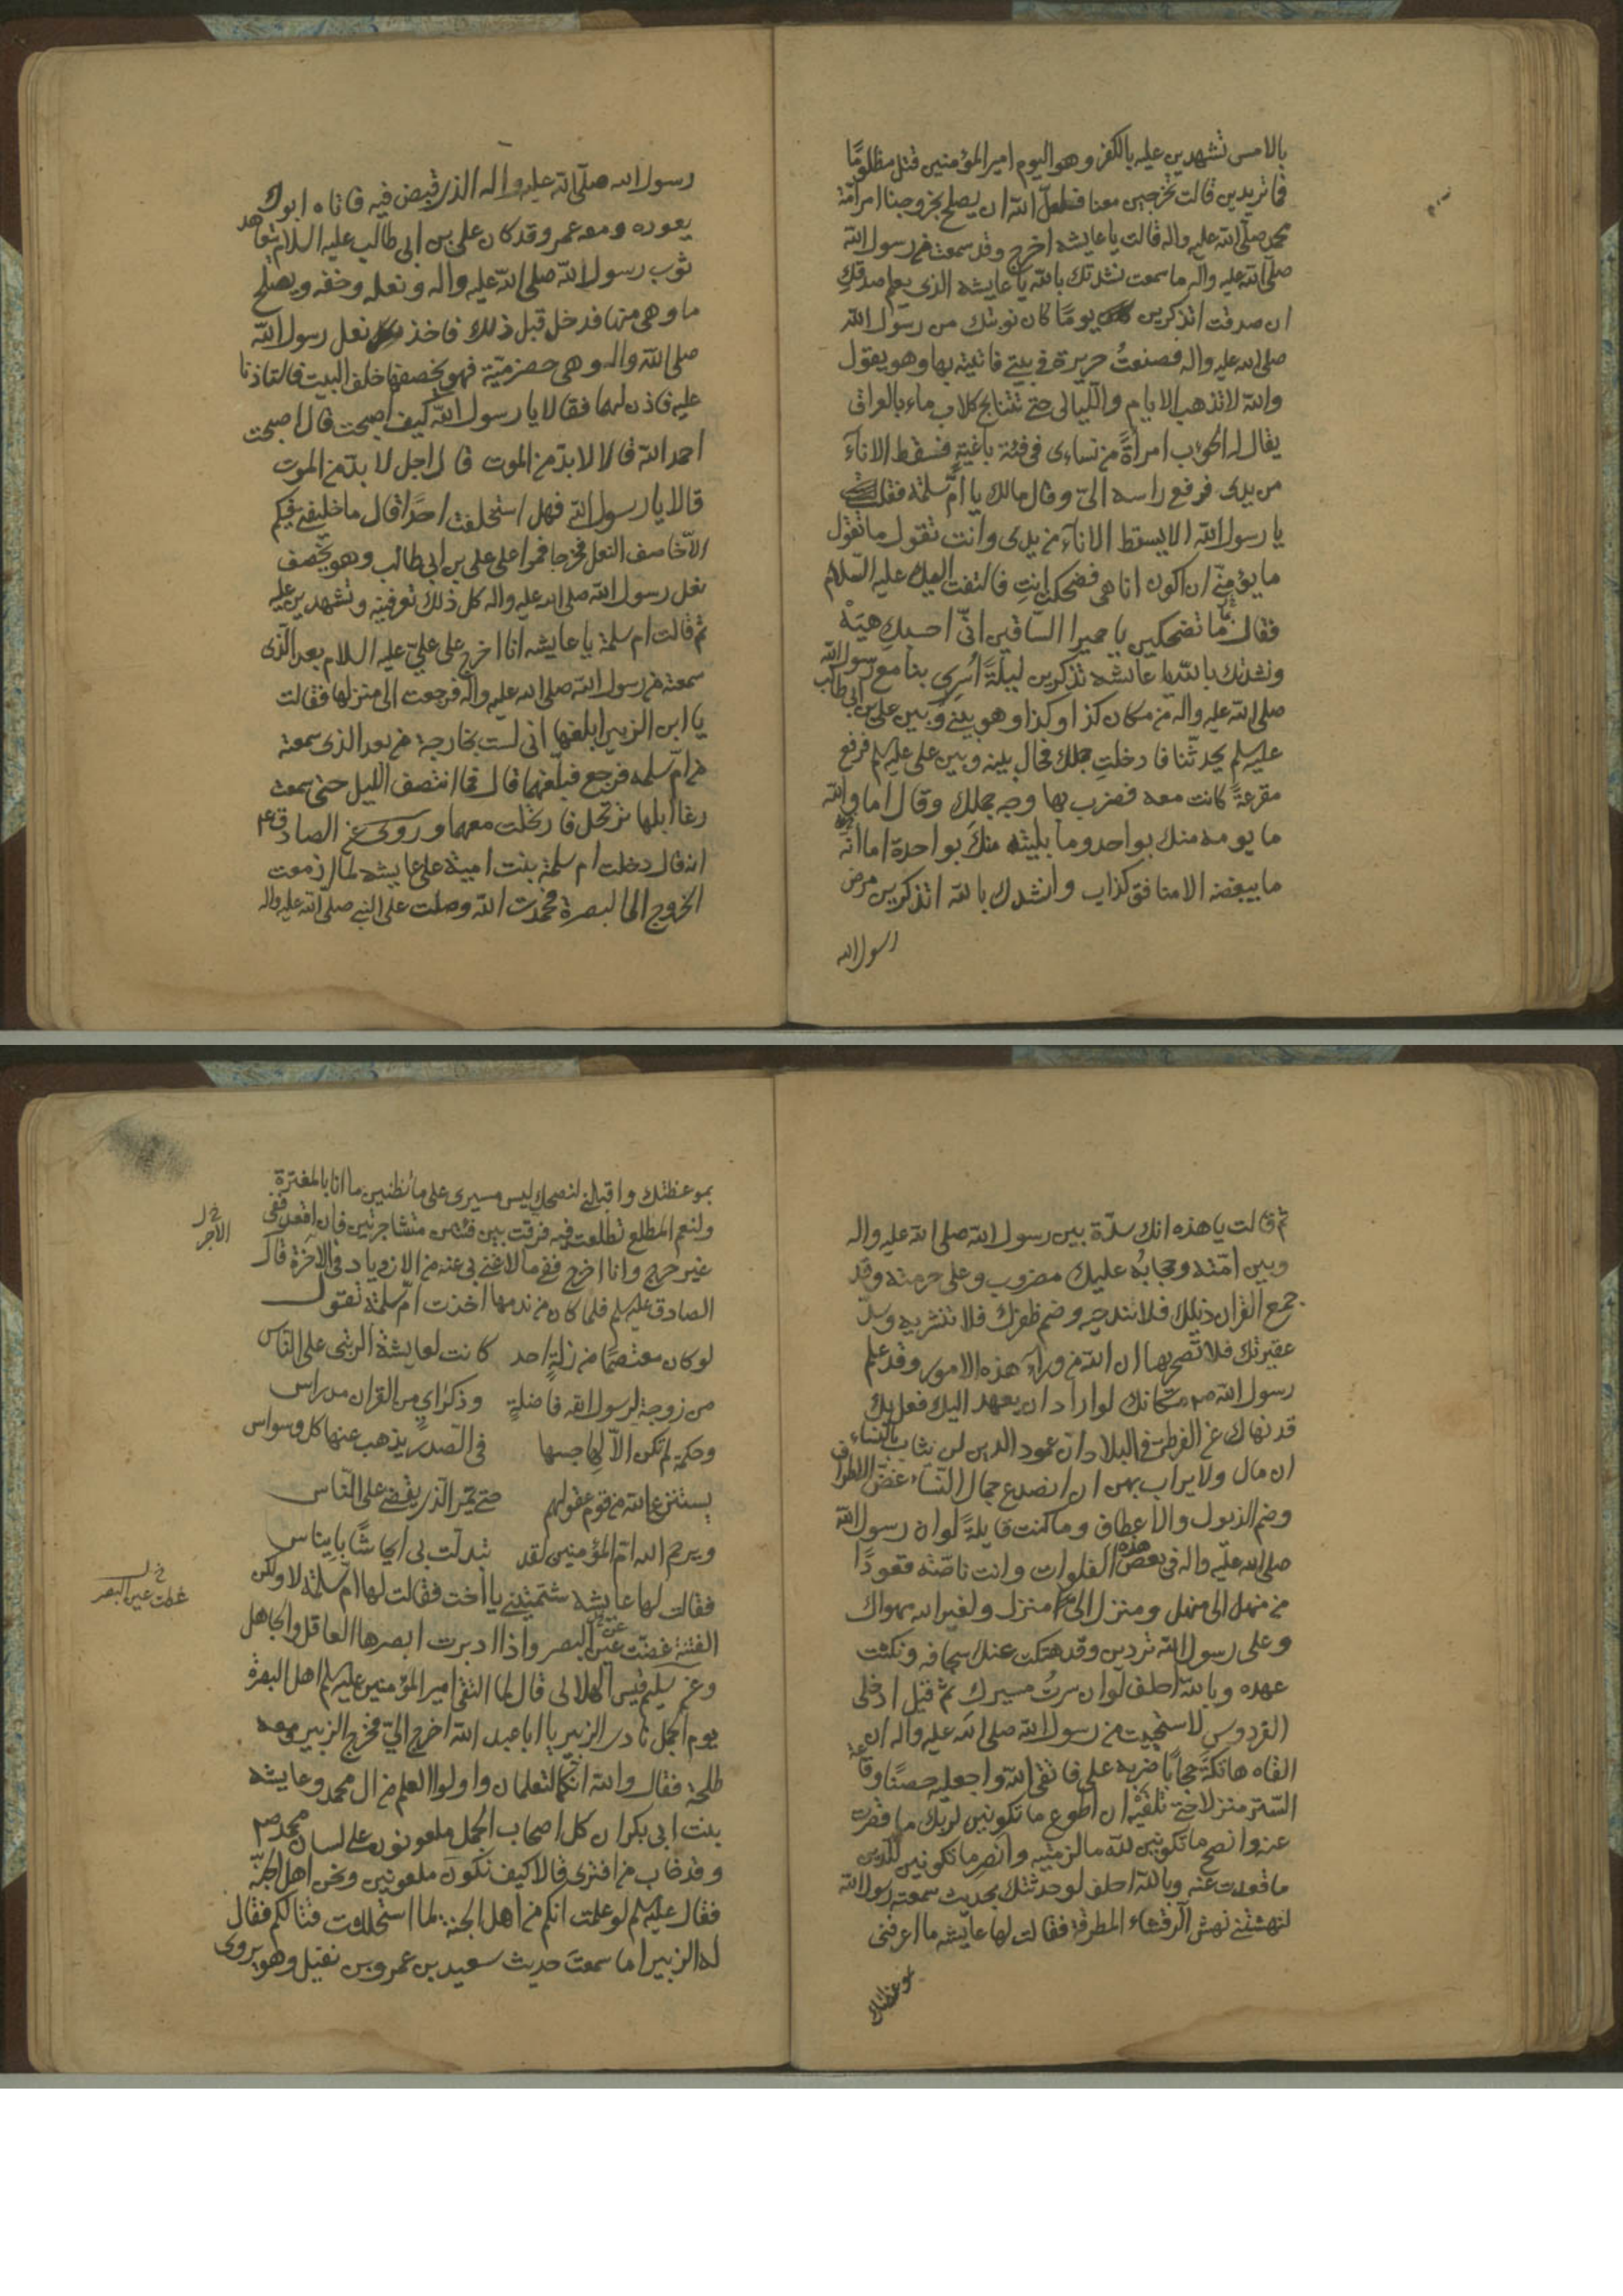 بالامس تشهدين عليه بالكفر وهو اليوم امير المؤمنين قتل مظلومًا
فما تريدين قالت تخرجين معنا فلعل الله ان يصلح بخروجنا امر امّة
محمد صلى الله عليه واله قالت يا عايشه اخرج وقد سمعت من رسول الله
صلى الله عليه واله ما سمعت نشدتك بالله يا عايشه الذى يعلم صدقك
ان صدقت اتذكرين يومًا كان نوبتك من رسول الله
صلى الله عليه واله فصنعتُ حريرة فى بيتى فاتيته بها وهو يقول
والله لا تذهب الايام والليالى حتى تتنابح كلاب ماء بالعراق
يقال له الحوب امراةً من نسائى فى فئة باغيةٍ فسقط الاناء
من يدى فرفع راسه الىّ وقال مالك يا امّ سلمة فقلت
يا رسول الله الا يسقط الاناء من يدى وانت تقول ما تقول
ما يؤمننى ان اكون انا هى فضحكتِ انتِ فالتفت اليك عليه السلام
فقال ممّا تضحكين يا حميرا الساقين انّى احسبكِ هيَهْ
ونشدتك بالله يا عايشه تذكرين ليلةً اُسرى بنا مع رسول الله
صلى الله عليه واله من مكان كذا وكذا وهو بينى وبين على بن ابى طالب
عليه سلم يحدثنا فادخلتِ جملك فحال بينه وبين على عليه سلم فرفع
مقرعةً كانت معه فضرب بها وجه جملكِ وقال اما والله
ما يومه منك بواحد وما بليته منكَ بواحدة اما انّه
ما يبغضه الا منافق كذاب وانشدك بالله اتذكرين مرض
رسول الله
رسول الله صلى الله عليه واله الذى قبض فيه فاتاه ابوكِ
يعوده ومعه عمر وقد كان على بن ابى طالب عليه السلام يتعاهد
ثوب رسول الله صلى الله عليه واله ونعله وخفه ويصلح
ما وهى منها فدخل قبل ذلك فاخذ نعل رسول الله
صلى الله واله وهى حضرميّة فهو يخصفها خلف البيت فاستاذنا
عليه فاذن لهما فقالا يا رسول الله كيف اصبحت قال اصبحت
احمد الله قالا لا بدّ من الموت قال اجل لا بدّ من الموت
قالا يا رسول الله فهل استخلفت احدًا قال ما خليفتى فيكم
الاّ خاصف النعل فخرجا فمرا على على بن ابى طالب وهو يخصف
نعل رسول الله صلى الله عليه واله كل ذلك تعرفينه وتشهدين عليه
ثم قالت ام سلمة يا عايشه انا اخرج على علىّ عليه السلام بعد الّذى
سمعته من رسول الله صلى الله عليه واله فرجعت الى منزلها فقالت
يا ابن الزبير ابلغها انى لست بخارجة من بعد الذى سمعته
من امّ سلمه فرجع فبلغهما قال فما انتصف الليل حتى سمعت
رغا ابلها ترتحل فارتحلت معهما وروى عن الصادق ع م
انه قال دخلت ام سلمة بنت امية على عايشه لما ازمعت
الخروج الى البصرة فحمدت الله وصلت على النبى صلى الله عليه واله
ثم قالت يا هذه انك سدّة بين رسول الله صلى الله عليه واله
وبين امّته وحجابُه عليك مضروب وعلى حرمته وقد
جمع القران ذيلك فلا تندحيه وضم ظفرك فلا تنشريه وسدّ
عقيرتك فلا تصحريها ان الله من وراء هذه الامور وقد علم
رسول الله ص م مكانك لو اراد ان يعهد اليك فعل بك
قد نهاك عن الفرطة فى البلاد ان عمود الدين لن يثاب بالنساء
ان مال ولا يراب بهن ان انصدع جمال النساء غضّ الاطراف
وضم الذيول والاعطاف وما كنت قايلةً لو ان رسول الله
صلى الله عليه واله فى بعض هذه الفلوات وانت ناصّته قعودًا
من منهل الى منهل ومنزل الى منزل ولغير الله مهواك
وعلى رسول الله تردين وقد هتكت عنك سجافه ونكثت
عهده وبالله احلف لو ان سرتُ مسيرك ثمّ قيل ادخلى
الفردوس لاستحييت من رسول الله صلى الله عليه واله ان
القاه هاتكة حجابًا ضربه على فاتقى الله واجعليه حصنًا وقاعة
الستر منزلا حتى تلقيْه ان اطوع ما تكونين لربك ما قصرت
عنه وانصح ما تكونين لله ما لزمتيه وانصر ما تكونين للدين
ما قعدت عنه وبالله احلف لو حدثتك بحديث سمعته رسول الله
لنهشتنى نهش الرقشاء المطرقة فقالت لها عايشه ما اعرفنى
بموعظتك
بموعظتك واقبلنى لنصحكِ ليس مسيرى على ما تظنين ما انا بالمغترة
ولنعم المطلع تطلعت فيه فرقت بين فئتين متشاجرتين فان اقعد ففى
غير حرج وانا اخرج ففى ما لا غنى بى عنه من الازدياد فى الاخرة قال
خ ل
الاجر
الصادق عليه سلم فلما كان من ندمها اخذت امّ سلمة تقول
لو كان معتصمًا من زلةٍ احد كانت لعايشة الرتبى على الناس
من زوجة لرسول الله فاضلةٍ وذكر اىٍ من القران مدراس
وحكمة لم تكن الاّ لهاجسها فى الصدر يذهب عنها كل وسواس
يستنزع الله من قوم عقولهم حتى يمر الذى يقضى على الناس
ويرحم الله امّ المؤمنين لقد تبدلت بى ايحاشًا بايناس
فقالت لها عايشه شتمتينى يا اخت فقالت لها ام سلمة لا ولكن
خ ل
غطت عين البصر
الفتنة غضّت عين البصر واذا ادبرت ابصرها العاقل والجاهل
وعن سليم قيس الهلالى قال لما التقى امير المؤمنين عليه سلم اهل البصرة
يوم الجمل نادى الزبير يا ابا عبد الله اخرج الىّ فخرج الزبير ومعه
طلحة فقال والله انّكما لتعلمان واولوا العلم من ال محمد وعايشه
بنت ابى بكر ان كل اصحاب الجمل ملعونون على لسان محمد ص م
وقد خاب من افترى قالا كيف نكون ملعونين ونحن اهل الجنّة
فقال عليه سلم لو علمت انكم من اهل الجنة لما استحللت قتالكم فقال
له الزبير اما سمعتَ حديث سعيد بن عمرو بن نفيل وهو يروى